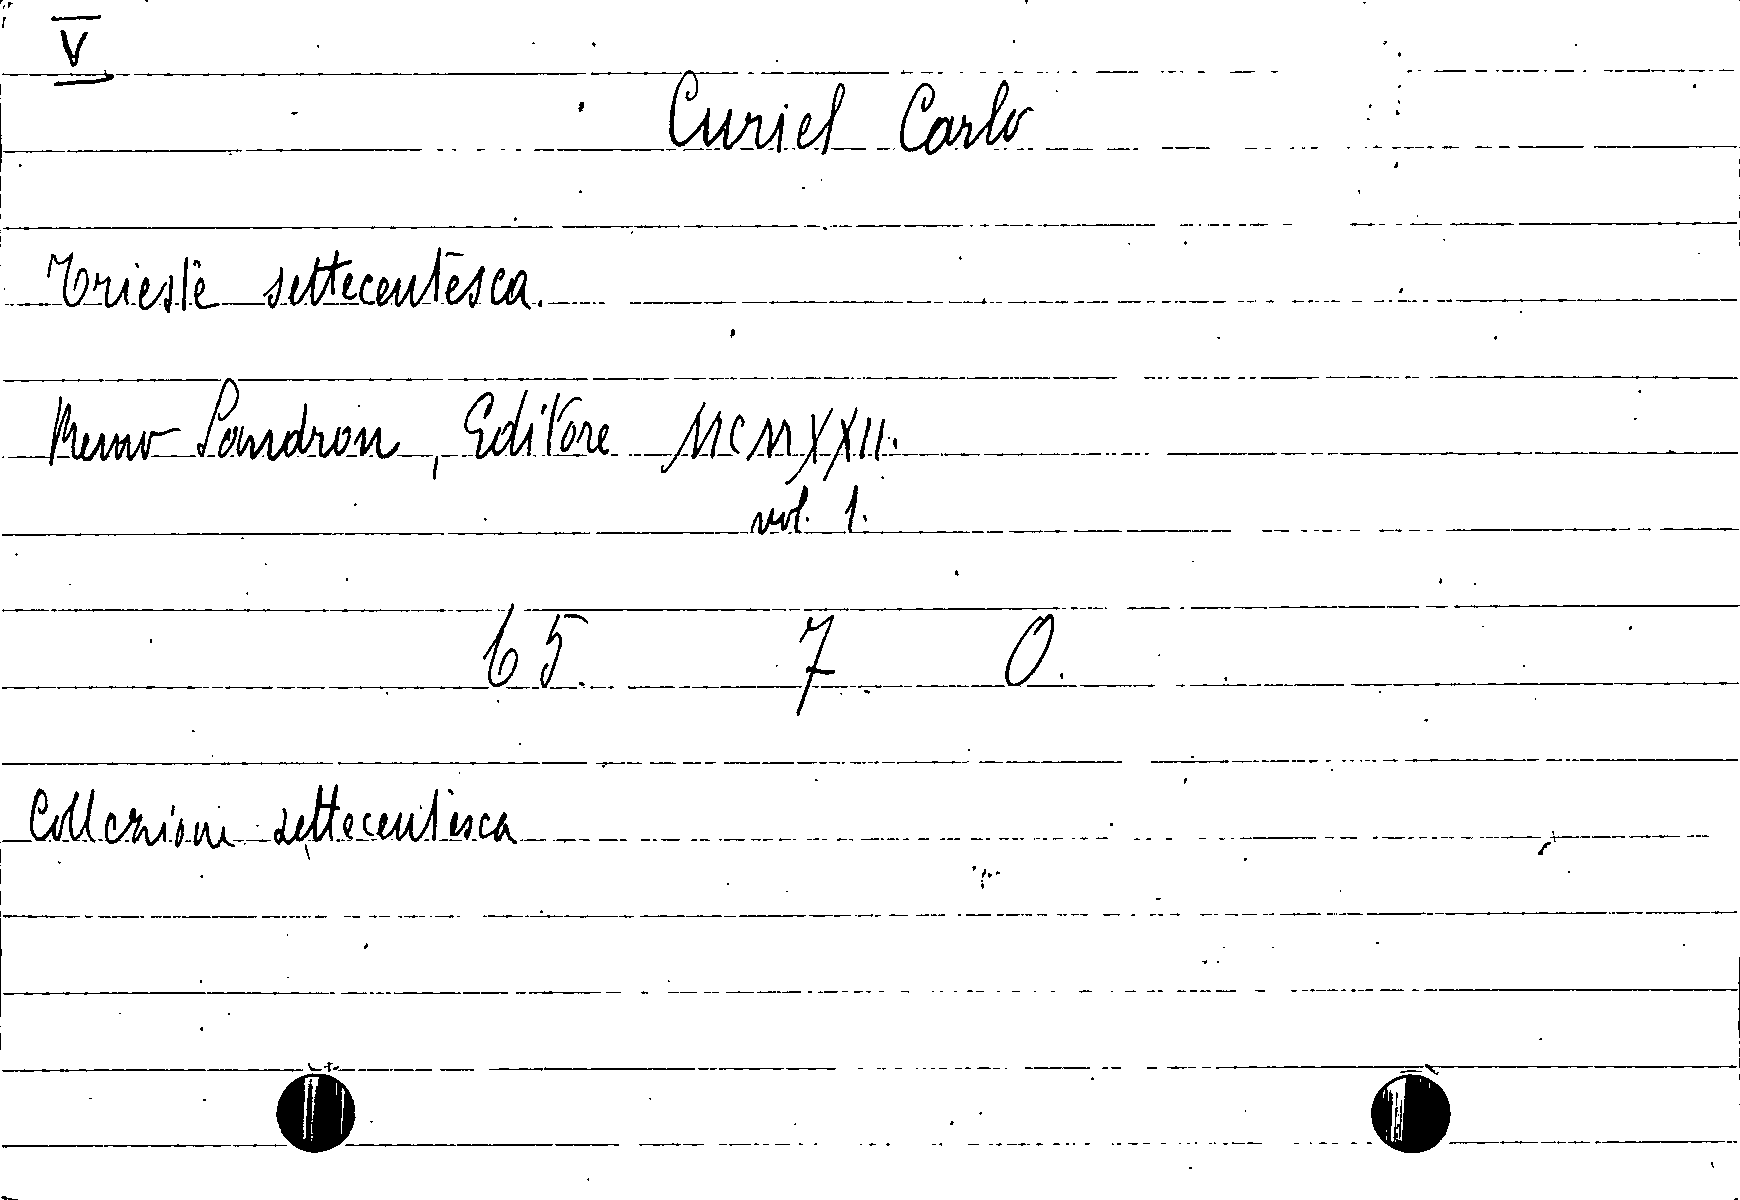 V
Curiel Carlo
Trieste settecentesca.
Remo Sandron, Editore MCMXXII.
vol. 1.
65. 7 0.
Collezione settecentesca